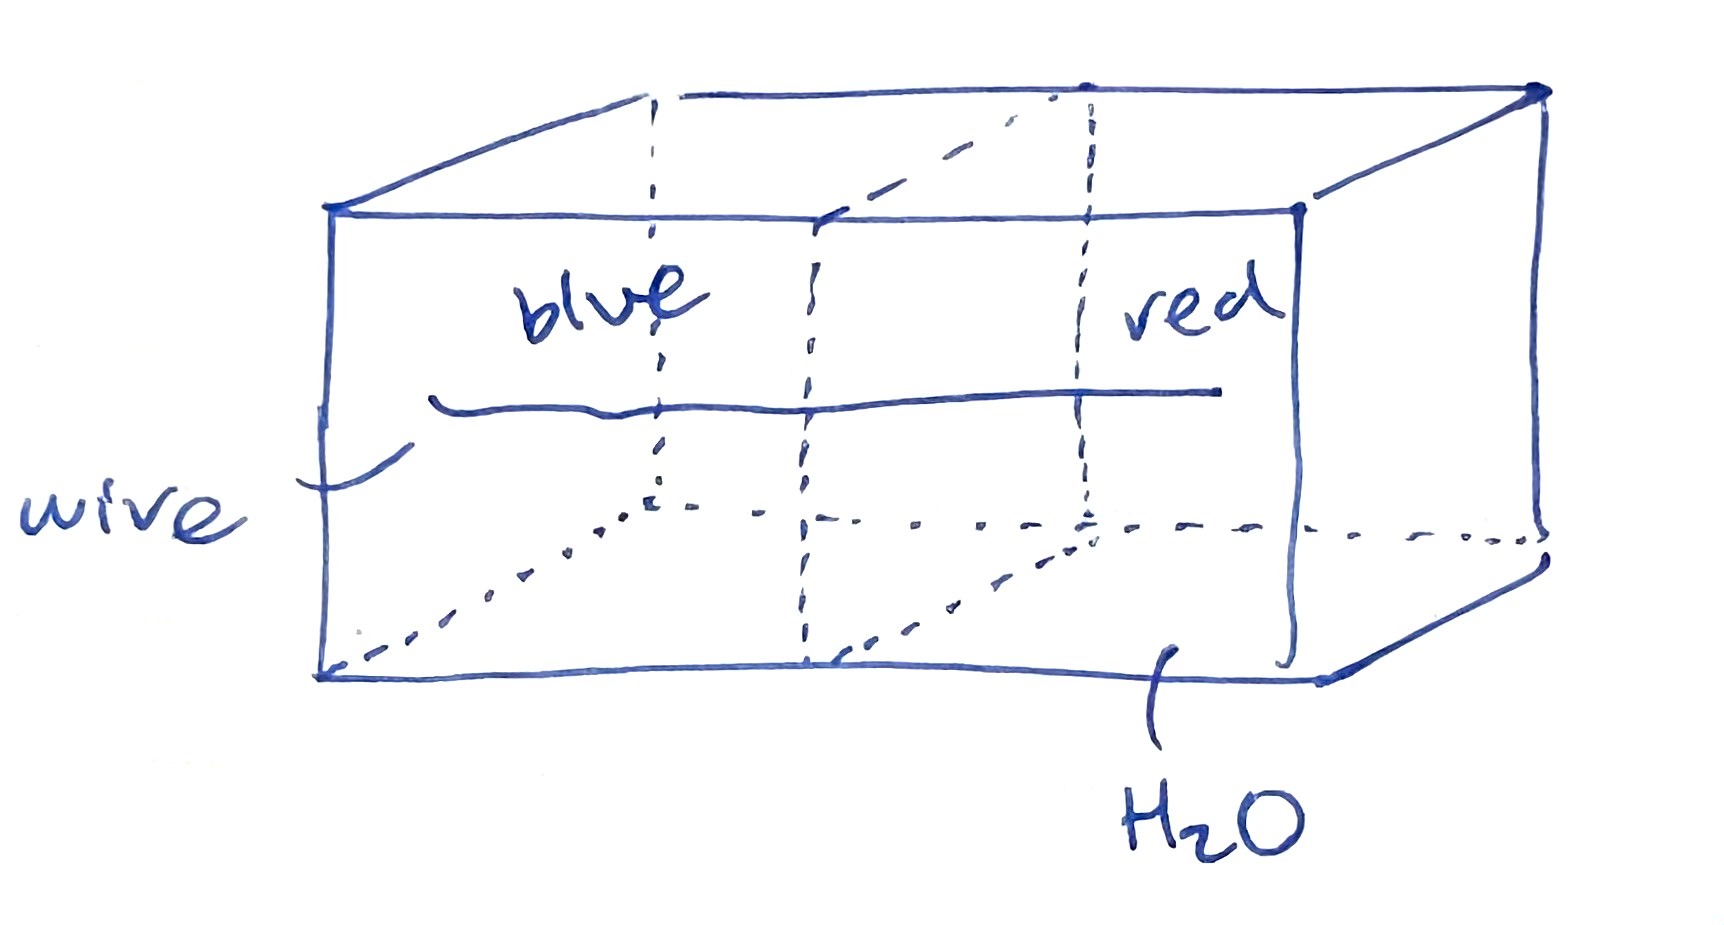 blue
red
wire
H₂O